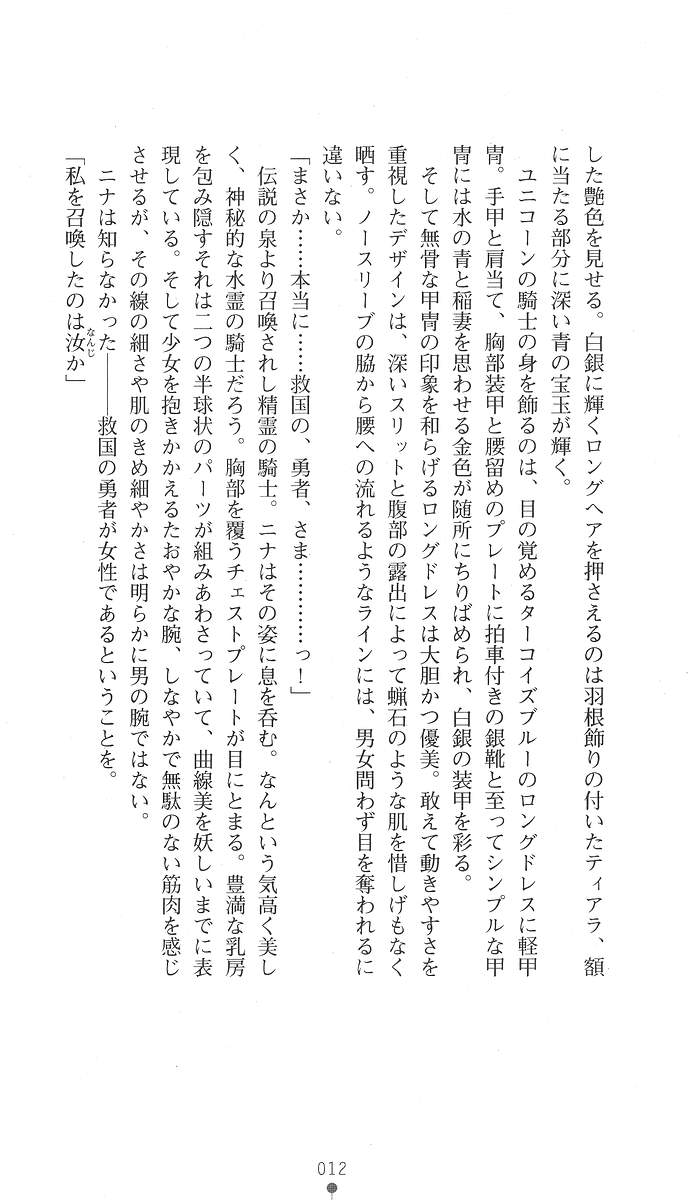 した艶色を見せる。白銀に輝くロングヘアを押さえるのは羽根飾りの付いたティアラ、額
に当たる部分に深い青の宝玉が輝く。
ユニコーンの騎士の身を飾るのは、目の覚めるターコイズブルーのロングドレスに軽甲
冑。手甲と肩当て、胸部装甲と腰留めのプレートに拍車付きの銀靴と至ってシンプルな甲
冑には水の青と稲妻を思わせる金色が随所にちりばめられ、白銀の装甲を彩る。
そして無骨な甲冑の印象を和らげるロングドレスは大胆かつ優美。敢えて動きやすさを
重視したデザインは、深いスリットと腹部の露出によって蝋石のような肌を惜しげもなく
晒す。ノースリーブの脇から腰への流れるようなラインには、男女問わず目を奪われるに
違いない。
「まさか……本当に……救国の、勇者、さま…………っ！」
伝説の泉より召喚されし精霊の騎士。ニナはその姿に息を呑む。なんという気高く美し
く、神秘的な水霊の騎士だろう。胸部を覆うチェストプレートが目にとまる。豊満な乳房
を包み隠すそれは二つの半球状のパーツが組みあわさっていて、曲線美を妖しいまでに表
現している。そして少女を抱きかかえるたおやかな腕、しなやかで無駄のない筋肉を感じ
させるが、その線の細さや肌のきめ細やかさは明らかに男の腕ではない。
ニナは知らなかった――救国の勇者が女性であるということを。
「私を召喚したのは汝なんじか」
012